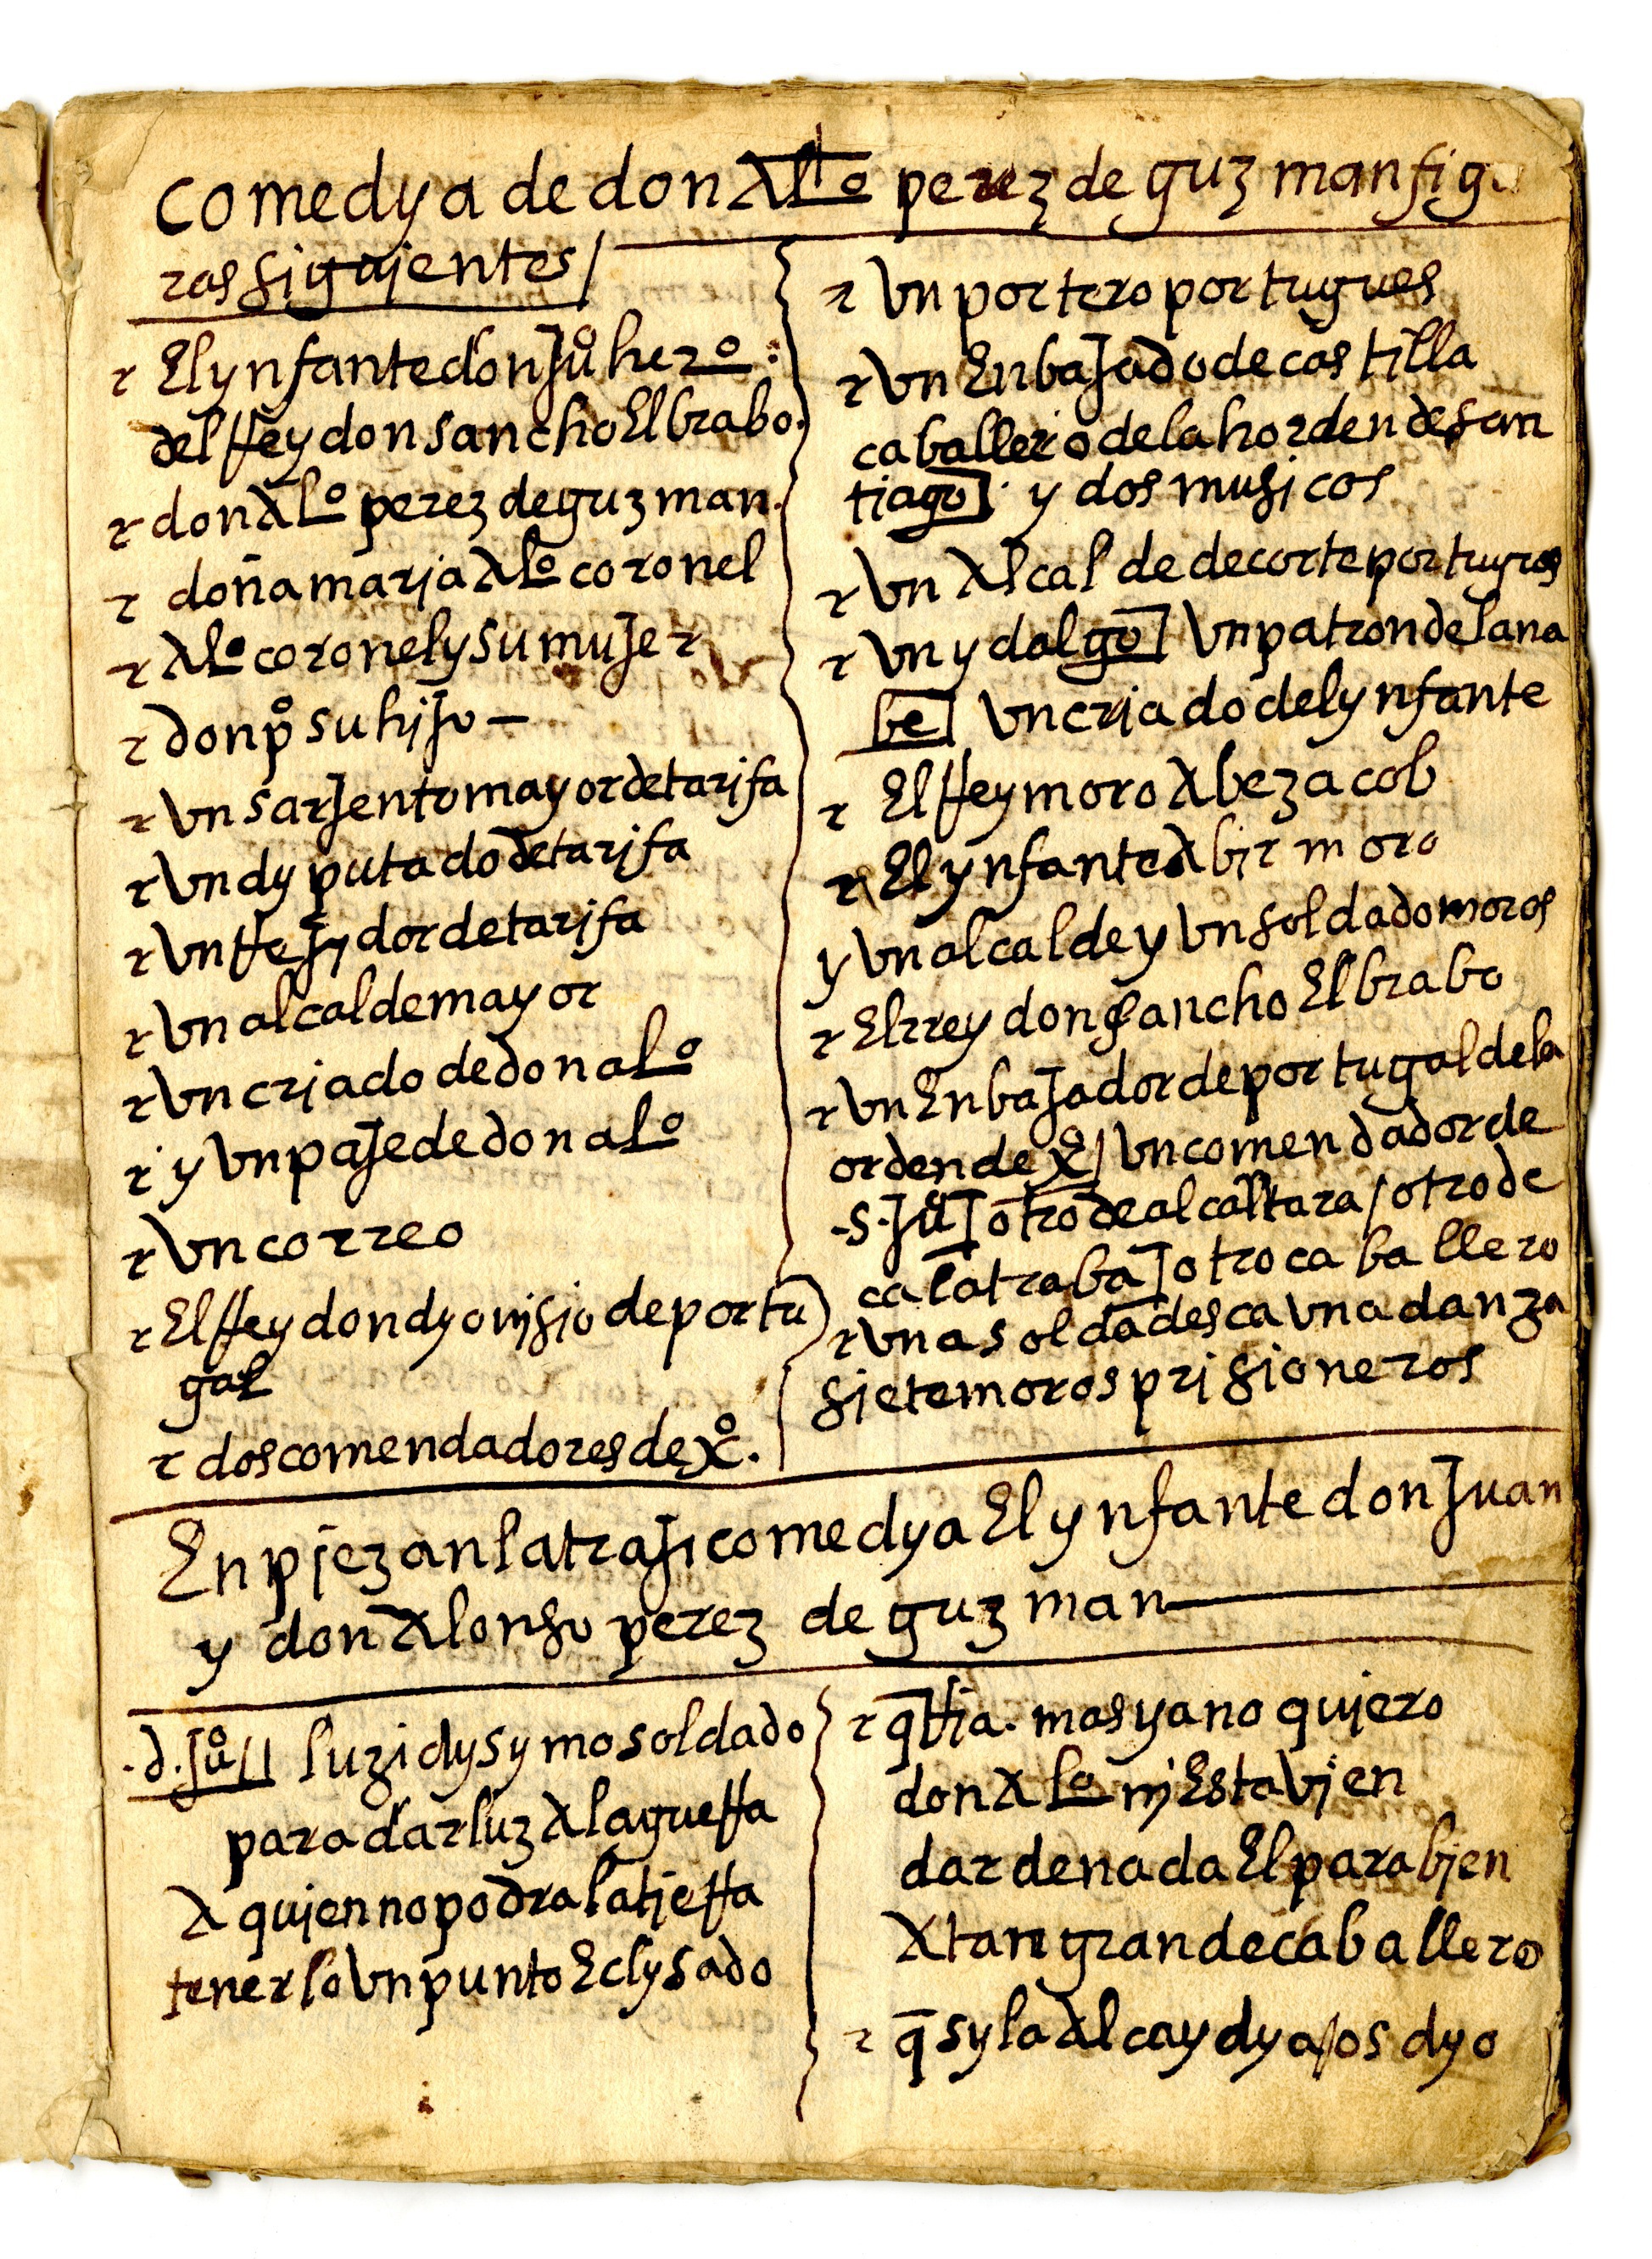 comedya de don Alº perez de guzman figu
ras siguientes /
r El ynfante don Juº herº :
del rrey don sancho El brabo.
r don Alº perez de guzman.
r doña maria Alº coronel
r Alº coronel y su mujer
r don pº su hijo —
r Vn sarjento mayor de tarifa
r Vn dyputado de tarifa
r Vn rrejydor de tarifa
r Vn alcalde mayor
r Vn criado de don alº
r y Vn paje de don alº
r Vn correo
r El rrey don dyonisio de portu
gal
r dos comendadores de Xº.
r Vn portero portugues
r Vn Enbajado de castilla
caballero de la horden de san
tiago] y dos musicos
r Vn Alcalde de corte portuges
r Vn ydalgo] Vn patron de la na
be] Vn criado del ynfante
r El rrey moro Abezacob
r El ynfante Abir moro
y Vn alcalde y Vn soldado moros
r El rrey don sancho El brabo
r Vn Enbajador de portugal de la
orden de X / Vn comendador de
.S. Juº] otro de alcantara / otro de
calatraba] otro caballero
r Vna soldadesca Vna danza
siete moros prisioneros
Enpiezan la trajicomedya El ynfante don Juan
y don Alonso perez de guzman
.d. Juº // luzidysymo soldado
para dar luz A la guerra
A quien no podra la tierra
tenerlo Vn punto Eclysado
r q̄rria. mas ya no quiero
don Alº ni Esta Vien
dar de nada El parabien
A tan grande caballero
r q̄ sy la Alcaydya os dyo